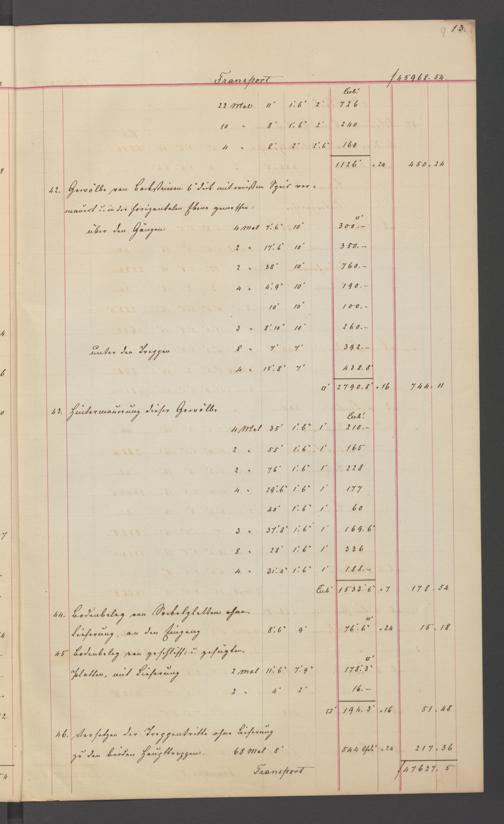 13.
Transport 45968.54
Cub'
22 Mal 11' 1'.6" 2' 726
10 " 8' 1'.6" 2' 240
4 " 8' 2' 2'.6" 160
1126' " 24 450.24
42. Gewölbe von Backsteinen 6" dick mit Speis ver-
mauert u. in der horizontalen Ebene gemessen.
über den Gängen 4 Mal 7'.6" 10' 300.-
2 " 17'.6" 10' 350.-
2 " 38' 10' 760.-
4 " 4'.9" 10' 190.-
10' 10' 100.-
3 " 8'.10" 10' 260.-
unter den Treppen 8 " 7' 7' 392.-
4 " 15'.8" 7' 438.8"
□' 2790.8" " 16 744.11
43. Hintermauerung dieser Gewölbe
Cub'
4 Mal 35' 1'.6" 1' 210.-
2 " 55' 1'.6" 1' 165
2 " 76' 1'.6" 1' 228
4 " 29'.6" 1'.6" 1' 177
40' 1'.6" 1' 60
3 " 37'.8" 1'.6" 1' 169.6"
8 " 28' 1'.6" 1' 336
4 " 31'.4" 1'.6" 1' 188.-
Cub' 1533'.6" " 7 178.54
44. Bodenbeleg von ohne
Lieferung, an den Eingang 8'.6" 9' 76'.6" " 24 15.18
45. Bodenbeleg von geschliff. u. gefügten
Platten, mit Lieferung 2 Mal 11'.6" 7'.9" 178'.3"
2 " 4' 2' 16.-
□' 194.3" " 16 51.48
46. Versetzen der Treppentritte ohne Lieferung
zu den beiden Haupttreppen. 68 Mal 8' 544 " 24 217.36
Transport 47627.5